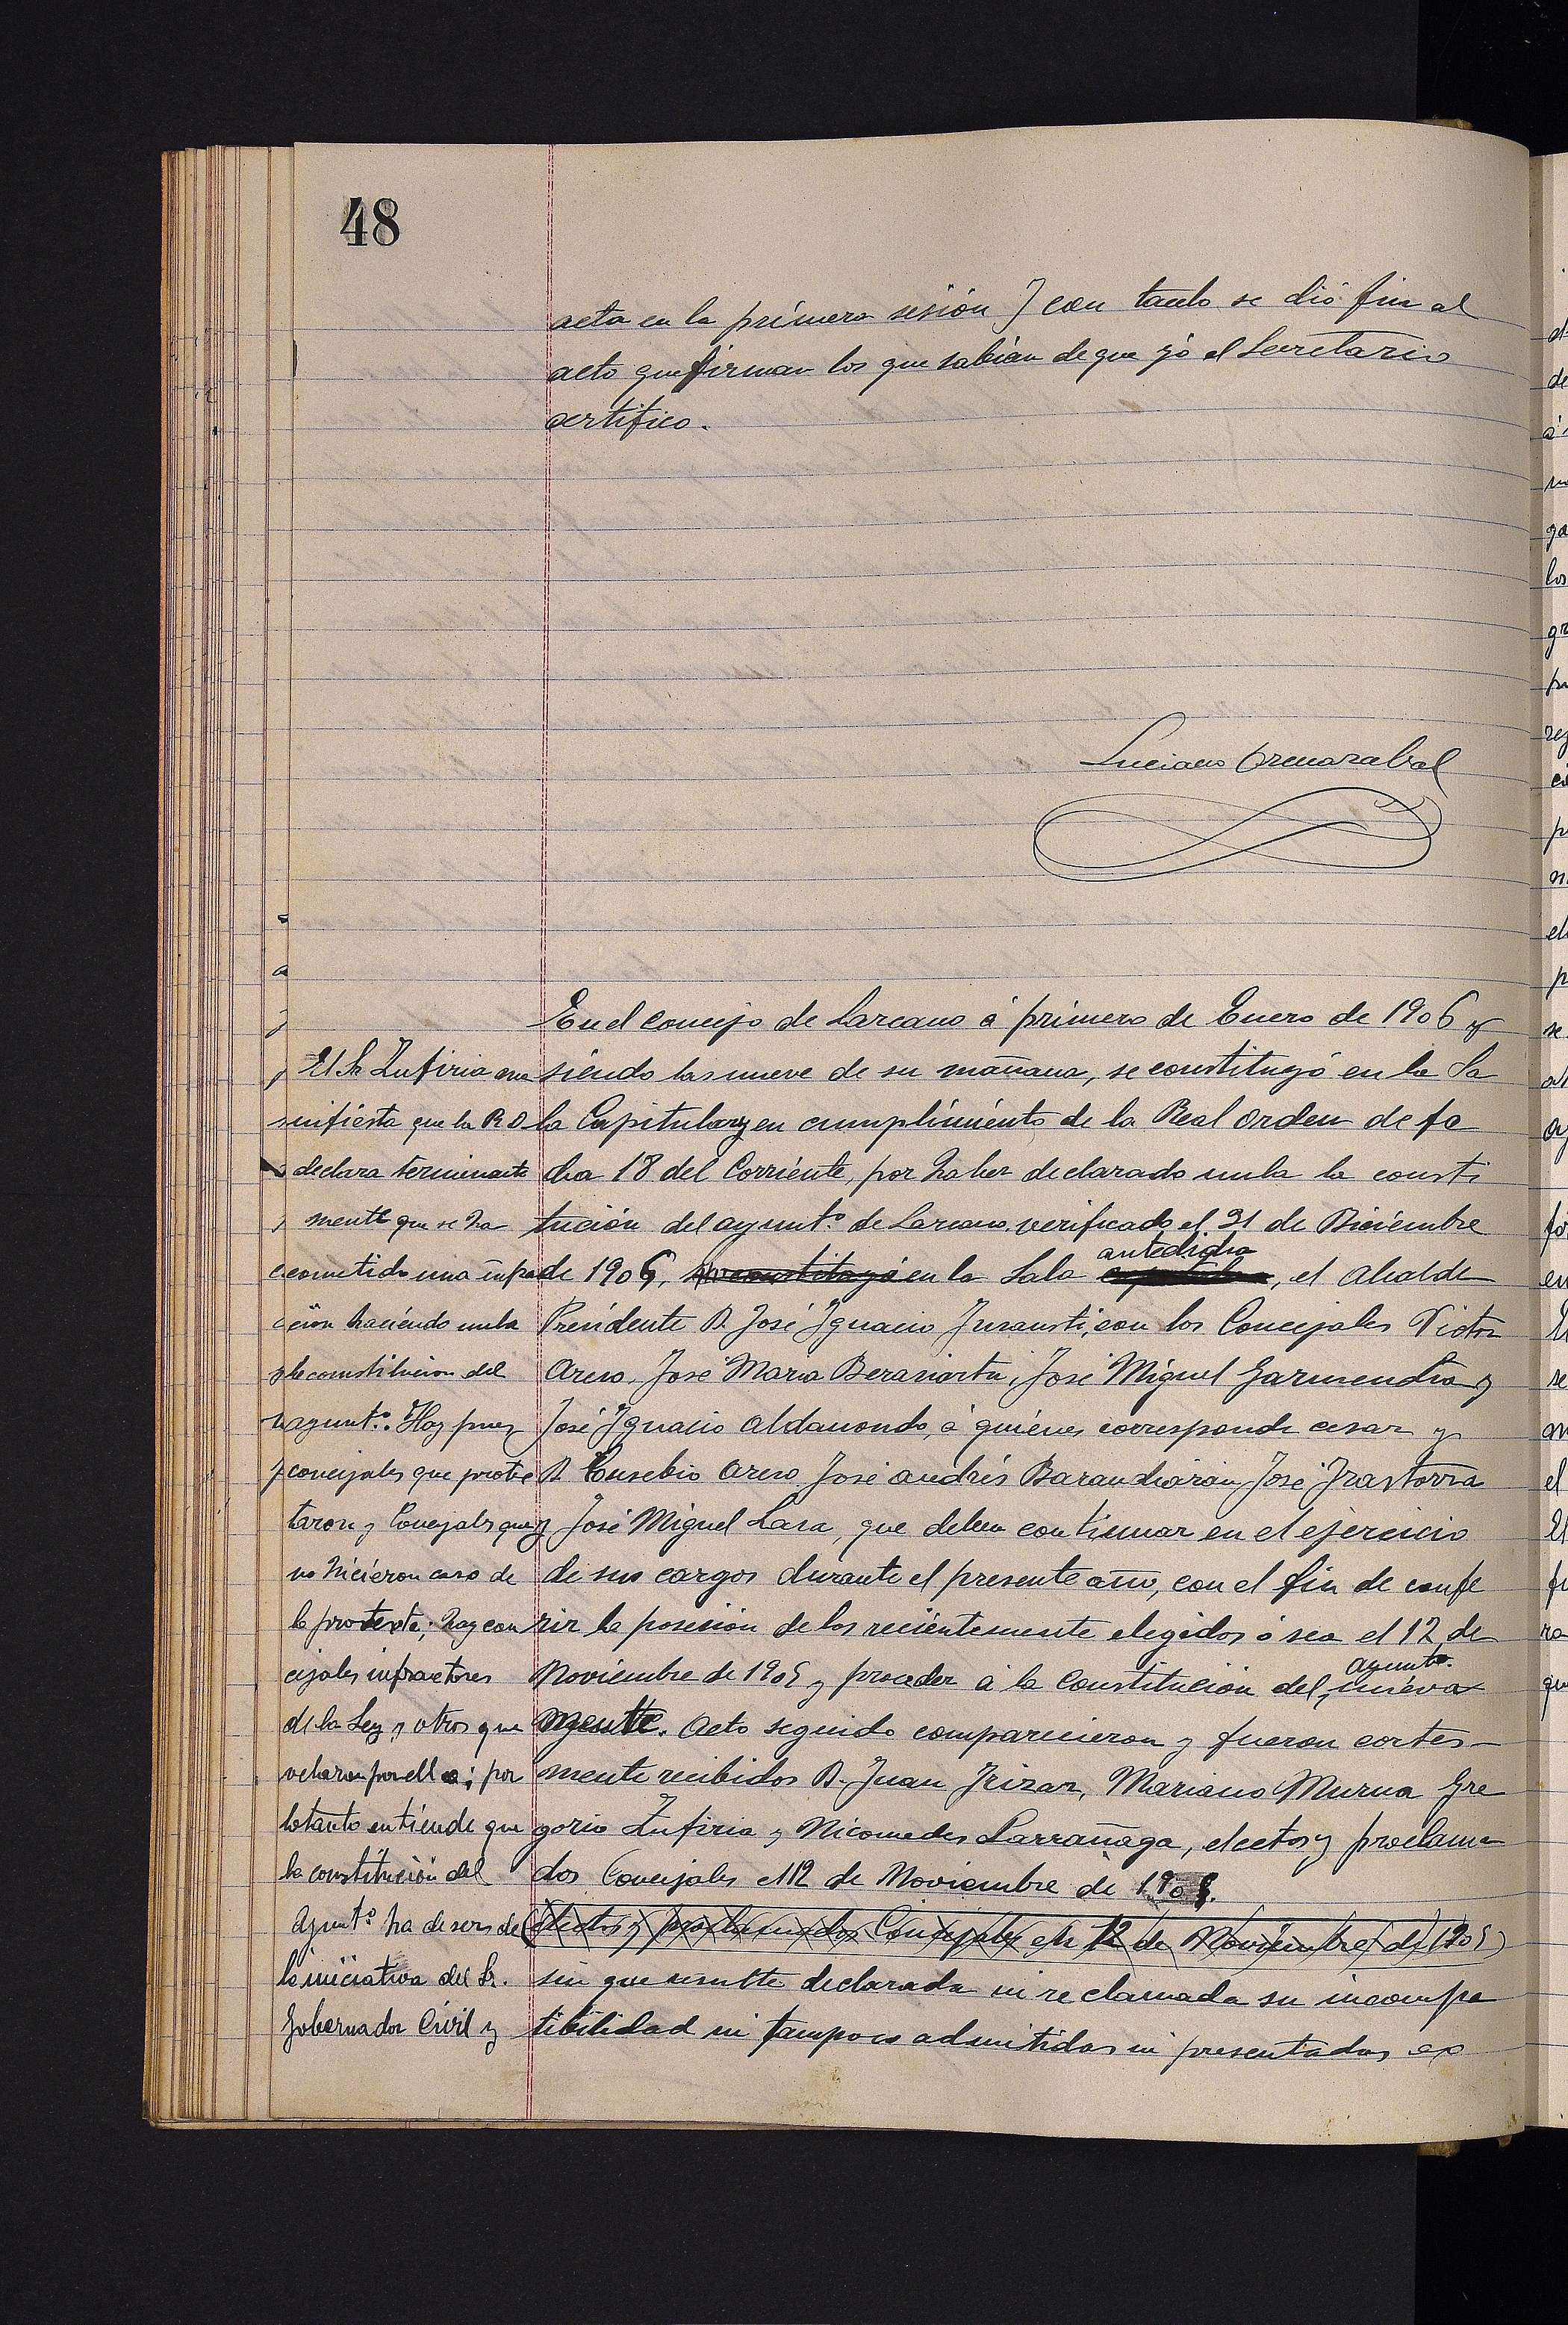 48
acta en la primera sesión Y con tanto se dió fin al
acto que firman los que sabian de que yó el Secretario
certifico.
Luciano Ormazabal
En el concejo de Lazcano á primero de Enero de 1906 y
siendo las nueve de su mañana, se constituyó en la Sa
la Capitular, y en cumplimiento de la Real orden de fe
cha 18 del Corriente, por haber declarado nula la consti
tución del ayunt.º de Lazcano verificado el 31 de Diciembre
antedicha
de 1905, se constituyó en la Sala, el Alcalde
Presidente D. José Ygnacio Ynsausti, con los Concejales Victor
Areso, José Maria Berasiartu, José Miguel Garmendia y
José Ygnacio Aldanondo, á quienes corresponde cesar y
D. Eusebio Areso José Andrés Barandiarán José Yrastorza
y José Miguel Lasa, que deben continuar en el ejercicio
de sus cargos durante el presente año, con el fin de confe
rir la posesión de los recientemente elegidos ó sea el 12 de
Ayunto.
Noviembre de 1905 y proceder á la Constitución del nueva
mente. Acto seguido comparecieron y fueron cortes-
mente recibidos D. Juan Yrizar, Mariano Murua Gre
gorio Zufiria y Nicomedes Larrañaga, electos y proclama
dos Concejales el 12 de Noviembre de 1905.
electos y proclamados Concejales el 12 de Noviembre de 1905
sin que resulte declarada ni reclamada su incompa
tibilidad ni tampoco admitidas ni presentadas ex
El Sr Zufiria ma
nifiesta que la R. O
declara terminante
mente que se ha
cometido una infra
ción haciendo nula
la constitucion del
ayunt.º. Hay pues
concejales que protes
taron y Concejales que
no hicieron caso de
la protesta; hay con
cejales infractores
de la Ley y otros que
velaron por ella; por
lo tanto entiende que
la constitución del
Ayunt.º ha de ser de
la iniciativa del Sr.
Gobernador Civil y